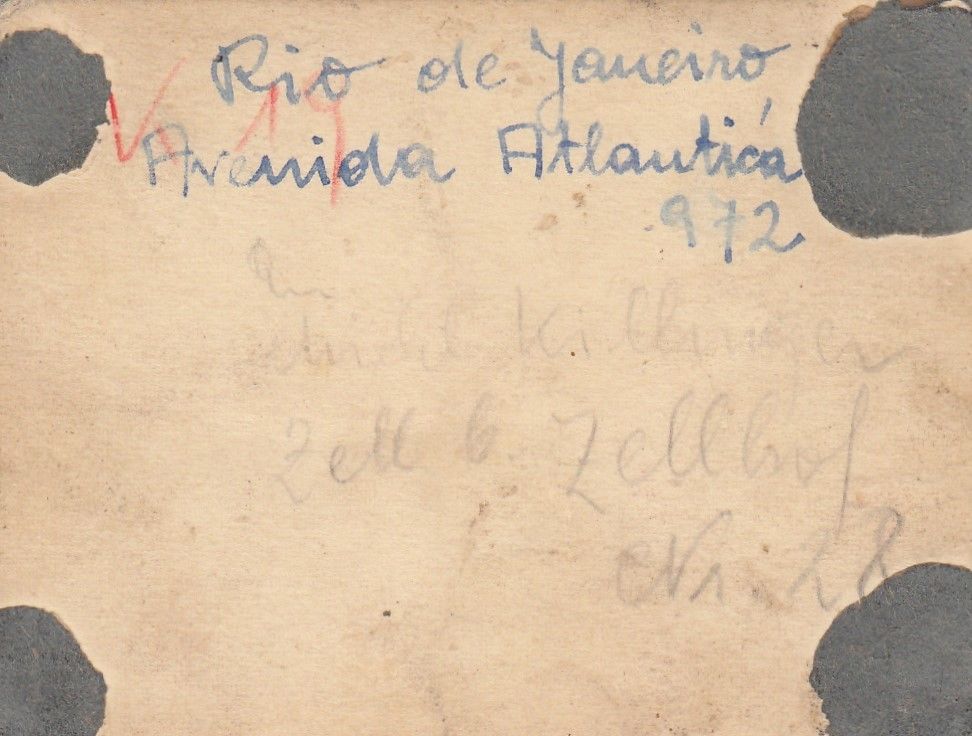 Rio de Janeiro
V. 19
Avenida Atlantica
972
An
Killinger
Zell b. Zellhof
Nr. 28